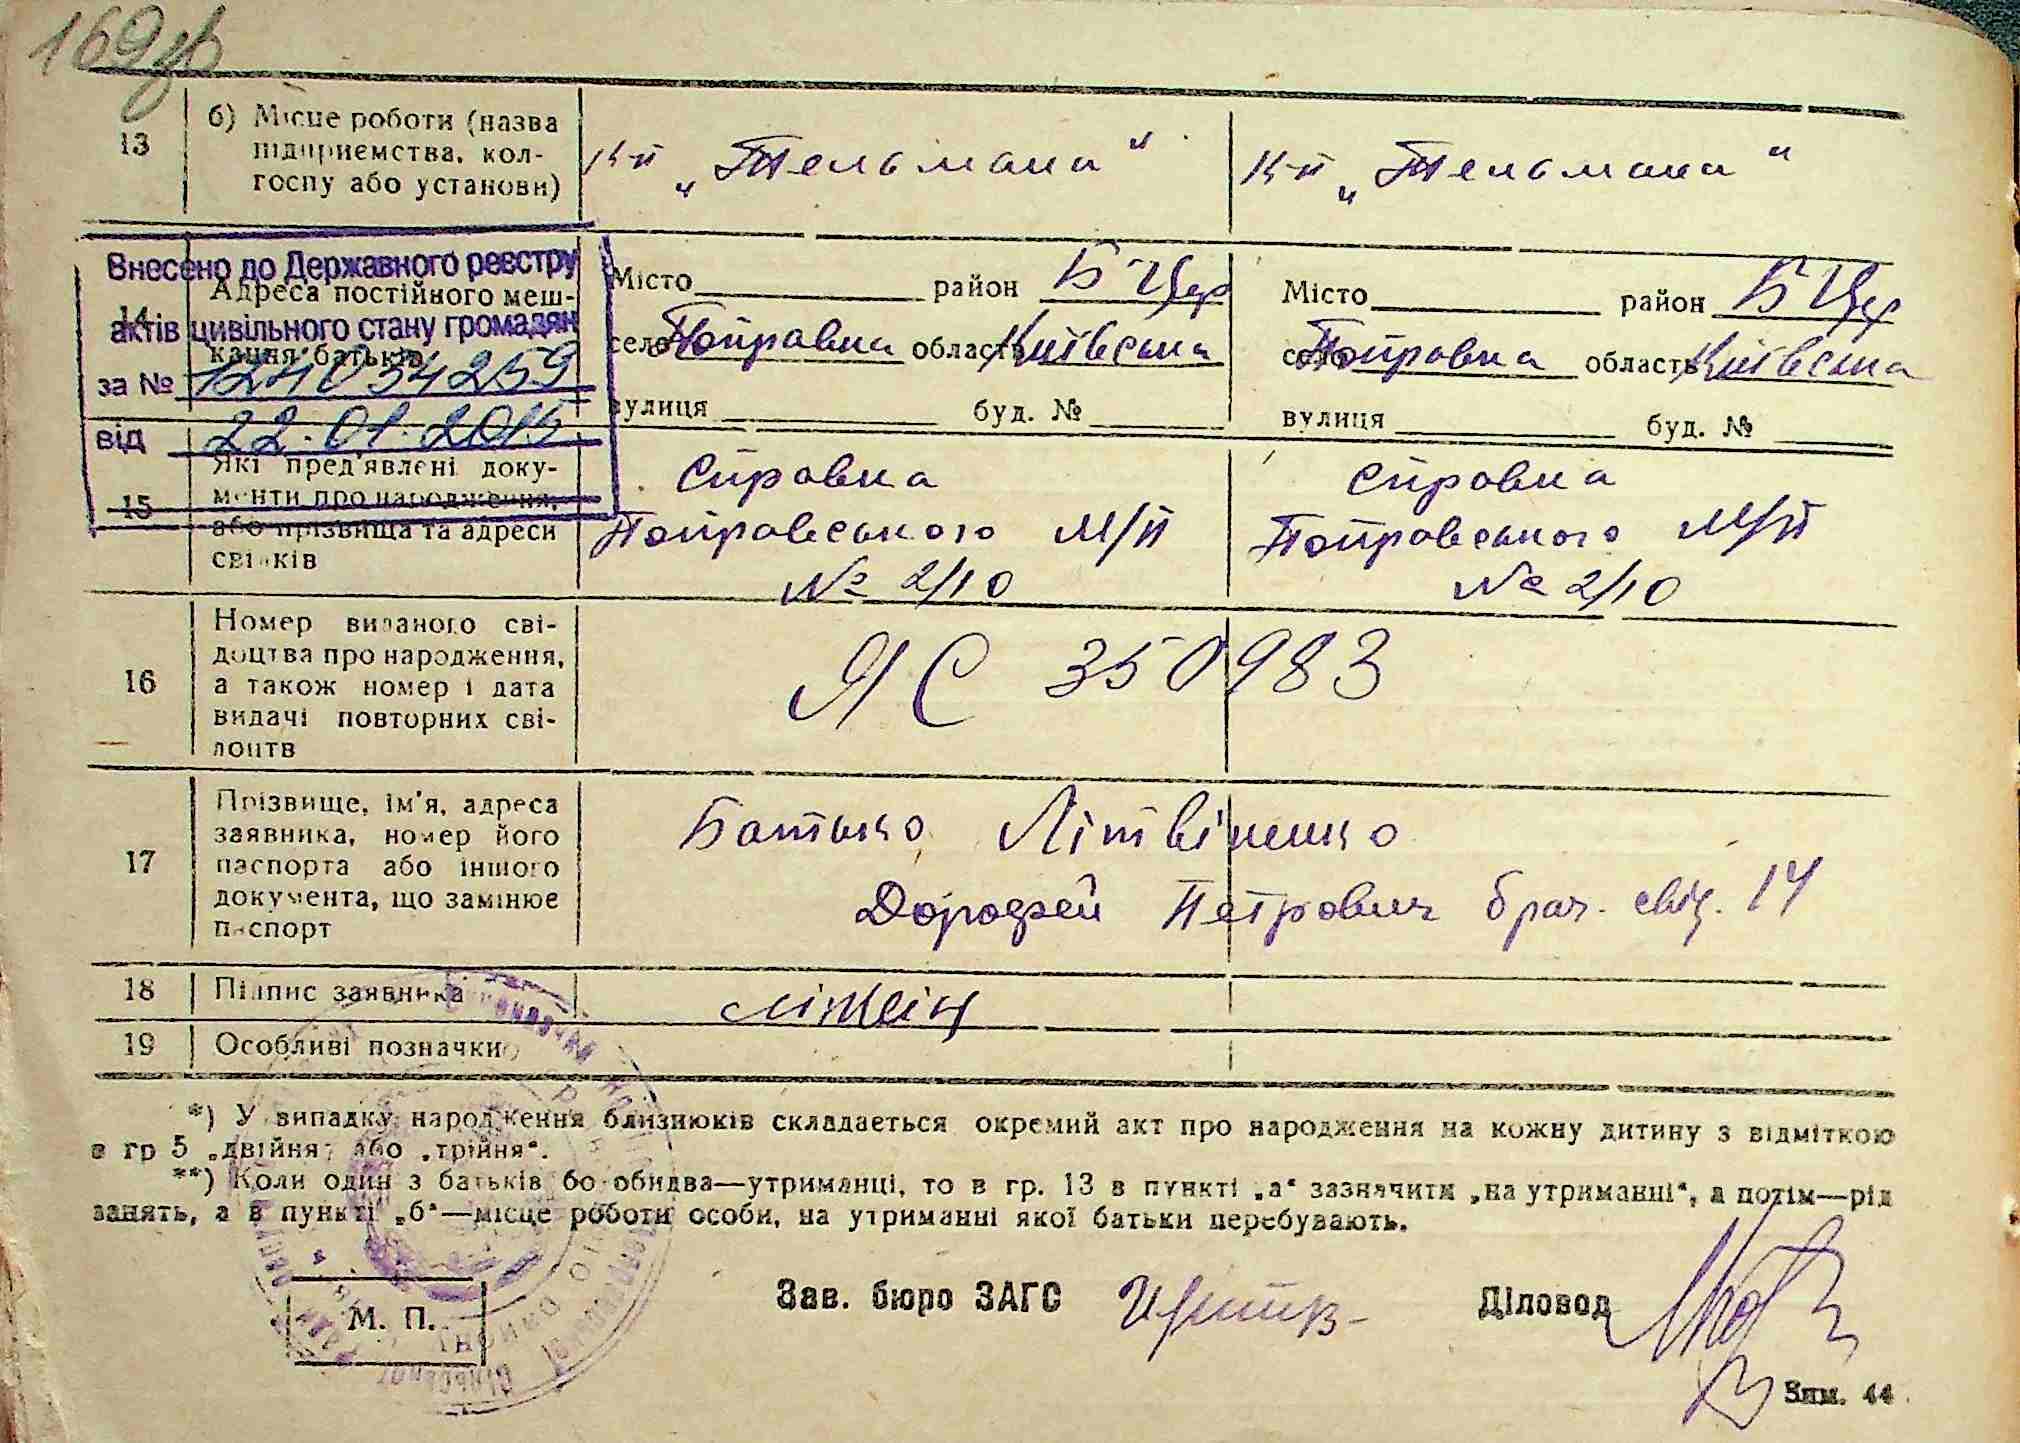 169 зв
13 б) Місце роботи (назва
підприємства, кол-
госпу або установи)
к-п „Тельмана" к-п „Тельмана"
Внесено до Державного реєстру
актів цивільного стану громадян
за № 124034259
від 22.01.2015
14 Адреса постійного меш-
кання батьків
Місто район Б Цер Місто район Б Цер
село Поправка область Київська село Поправка область Київська
вулиця буд. № вулиця буд. №
15 Які пред'явлені доку-
менти про народження,
або прізвища та адреси
свідків
Справка Справка
Поправського М/П Поправського М/П
№ 2/10 № 2/10
16 Номер виданого сві-
доцтва про народження,
а також номер і дата
видачі повторних сві-
доцтв
ЯС 350983
17 Прізвище, ім'я, адреса
заявника, номер його
паспорта або іншого
документа, що замінює
паспорт
Батько Літвіненко
Дорофей Петрович брач. свід. 14
18 Підпис заявника Літвін
19 Особливі позначки
*) У випадку народження близнюків складається окремий акт про народження на кожну дитину з відміткою
в гр 5 „двійня" або „трійня".
**) Коли один з батьків бо обидва—утриманці, то в гр. 13 в пункті „а" зазначити „на утриманні", а потім—рід
занять, а в пункті „б"—місце роботи особи, на утриманні якої батьки перебувають.
М. П.
Зав. бюро ЗАГС Діловод
Зам. 44